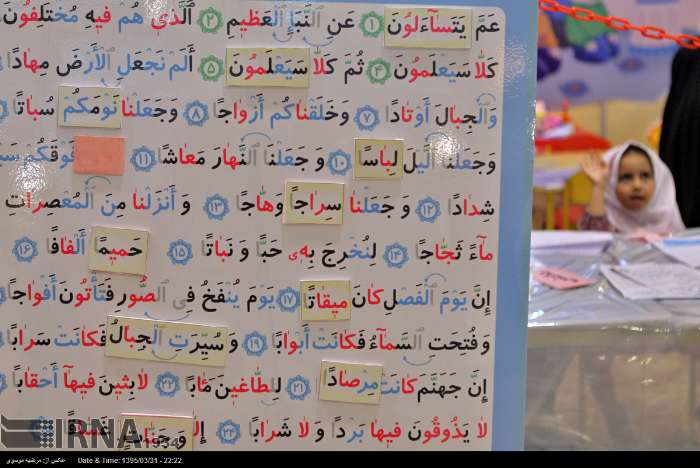 عَمَّ يَتَسآءَلُونَ ﴿١﴾ عَنِ النَّبَإِ الْعَظيمِ ﴿٢﴾ الَّذي هُمْ فيهِ مُخْتَلِفُونَ
كَلّا سَيَعْلَمُونَ ﴿٤﴾ ثُمَّ كَلّا سَيَعْلَمُونَ ﴿٥﴾ أَلَمْ نَجْعَلِ الْأَرْضَ مِهادًا
وَالْجِبالَ أَوْتادًا ﴿٧﴾ وَخَلَقْناكُمْ أَزْواجًا ﴿٨﴾ وَجَعَلْنا نَوْمَكُمْ سُباتًا
وَجَعَلْنَا الَّيْلَ لِباسًا ﴿١٠﴾ وَ جَعَلْنَا النَّهارَ مَعاشًا ﴿١١﴾ فَوْقَكُمْ
شِدادًا ﴿١٢﴾ وَ جَعَلْنا سِراجًا وَهّاجًا ﴿١٣﴾ وَ أَنْزَلْنا مِنَ الْمُعْصِراتِ
مآءً ثَجّاجًا ﴿١٤﴾ لِنُخْرِجَ بِهٖ حَبًّا وَ نَباتًا ﴿١٥﴾ حَميمًا أَلْفافًا ﴿١٦﴾
إِنَّ يَوْمَ الْفَصْلِ كانَ ميقاتًا ﴿١٧﴾ يَوْمَ يُنْفَخُ فِي الصُّورِ فَتَأْتُونَ أَفْواجًا
وَ فُتِحَتِ السَّمآءُ فَكانَتْ أَبْوابًا ﴿١٩﴾ وَ سُيِّرَتِ الْجِبالُ فَكانَتْ سَرابًا
إِنَّ جَهَنَّمَ كانَتْ مِرْصادًا ﴿٢١﴾ لِلطّاغينَ مَئابًا ﴿٢٢﴾ لابِثينَ فيهآ أَحْقابًا
لا يَذُوقُونَ فيها بَرْدًا وَ لا شَرابًا ﴿٢٤﴾
IRNA 1934
عکس از: مرضیه موسوی Date & Time: 1395/03/31 - 22:22